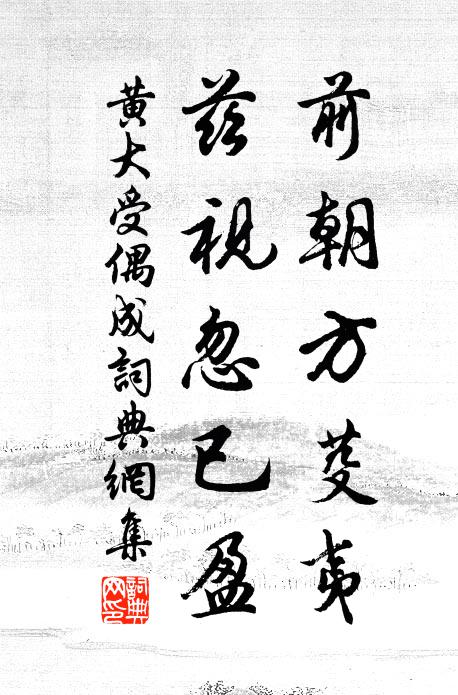 前朝方芟夷
茲視忽已盈
黃大受偶成詞典網集
詞典網印